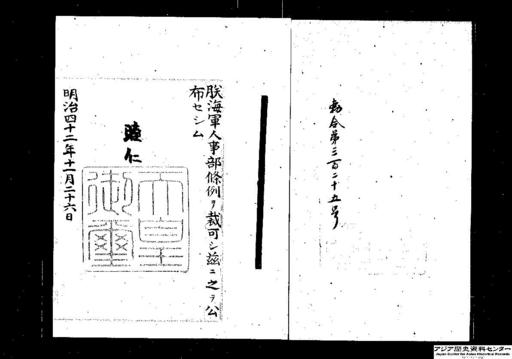 勅令第三百二十五号
朕海軍人事部條例ヲ裁可シ茲ニ之ヲ公
布セシム
睦仁
天皇御璽
明治四十二年十一月二十六日
アジア歴史資料センター
Japan Center for Asian Historical Records